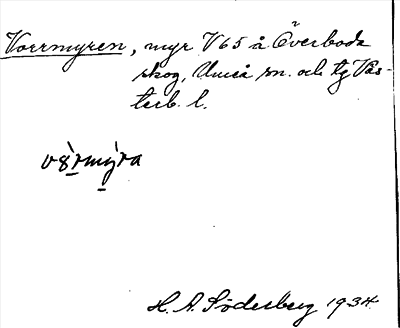 Vorrmyren, myr V65 å Överboda
skog, Umeå sn. och tg Väs-
terb. l.
v8̀rmỳra
H. A. Söderberg 1934.